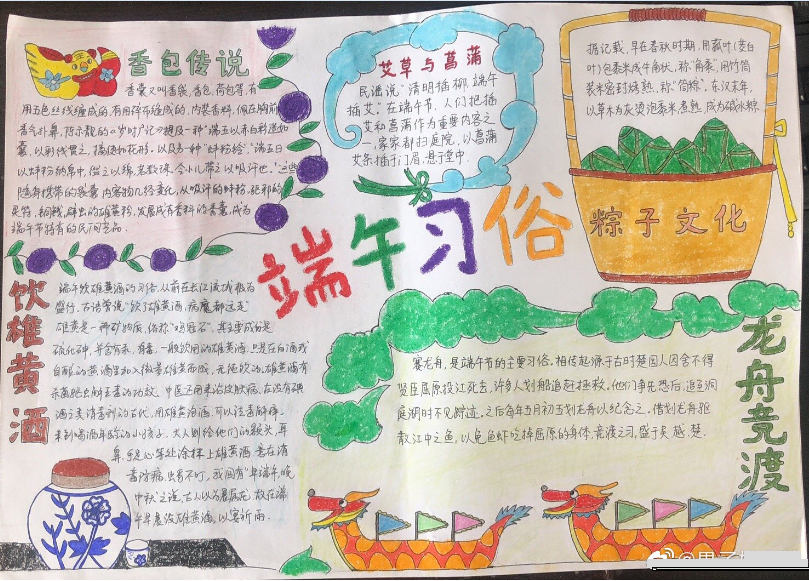 香包传说
香囊又叫香袋、香包、荷包等,有
用五色丝线缠成的,有用碎布缝成的,内装香料,佩在胸前,
香气扑鼻。陈示靓的《岁时广记》
端五以赤白彩造如
囊,以彩线贯之,搐使如花形
端五日
以蚌粉纳帛中,缀之以绵,若数珠。令小儿带之以吸汗也
这些
随身携带的袋囊,内容物几经变化,从吸汗的蚌粉、驱邪的
灵符、铜钱,辟虫的雄黄粉,发展成有香料的香囊,成为
端午节特有的民间艺品。
艾草与菖蒲
民谣说:"清明插柳,端午
插艾。"在端午节,人们把插
艾和菖蒲作为重要内容之
一,家家都扫庭院,以菖蒲
艾条插于门眉,悬于堂中。
据记载,早在春秋时期,用菰叶(茭白
叶)包黍米成牛角状,称"角黍",用竹筒
装米密封烤熟,称"筒粽"。东汉末年,
以草木灰浸泡黍米,煮熟,成为碱水粽
粽子文化
端午习俗
饮雄黄酒
端午饮雄黄酒的习俗,从前在长江流域极为
盛行。古语曾说"饮了雄黄酒,病魔都远走"
雄黄是一种矿物质,俗称"鸡冠石",其主要成份是
硫化砷,并含有汞,有毒。一般饮用的雄黄酒,只是在白酒或
自酿的黄酒里加入微量雄黄而成,无纯饮的。雄黄酒有
杀菌驱虫解五毒的功效,中医还用来治皮肤病。在没有碘
酒之类消毒剂的古代,用雄黄泡酒,可以祛毒解痒。
未到喝酒年龄的小孩子,大人则给他们的额头、耳
鼻、手足心等处涂抹上雄黄酒,意在消
毒防病,虫豸不叮。
龙舟竞渡
赛龙舟,是端午节的主要习俗。相传起源于古时楚国人因舍不得
贤臣屈原投江死去,许多人划船追赶拯救。他们争先恐后,追至洞
庭湖时不见踪迹。之后每年五月初五划龙舟以纪念之。借划龙舟驱
散江中之鱼,以免鱼虾吃掉屈原的身体。竞渡之习,盛于吴、越、楚。